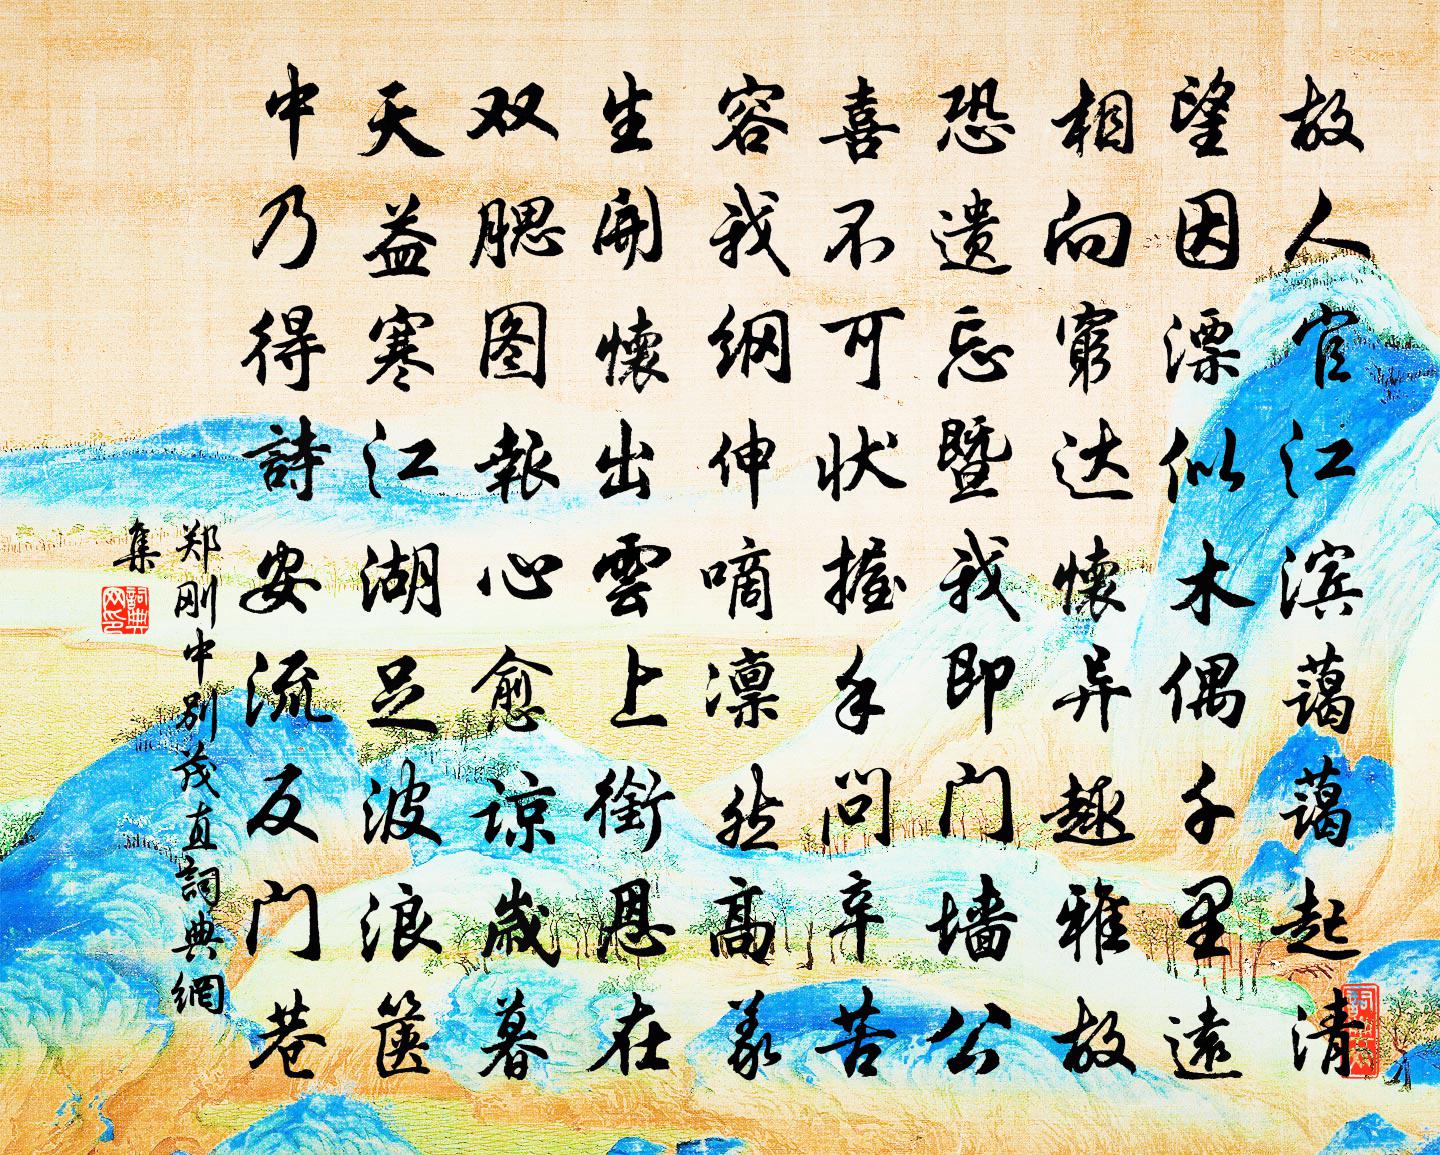 故人官江滨蔼蔼起清
望因漂似木偶千里遠
相向窮达懷异趣雅故
恐遗忘暨我即门墙公
喜不可状握手问辛苦
容我纲伸嘀凛然高義
生開懷出雲上銜恩在
双腮图報心愈谅歲暮
天益寒江湖足波浪箧
中乃得詩安流反门巷
郑刚中别茂直詞典網
集
詞典網印